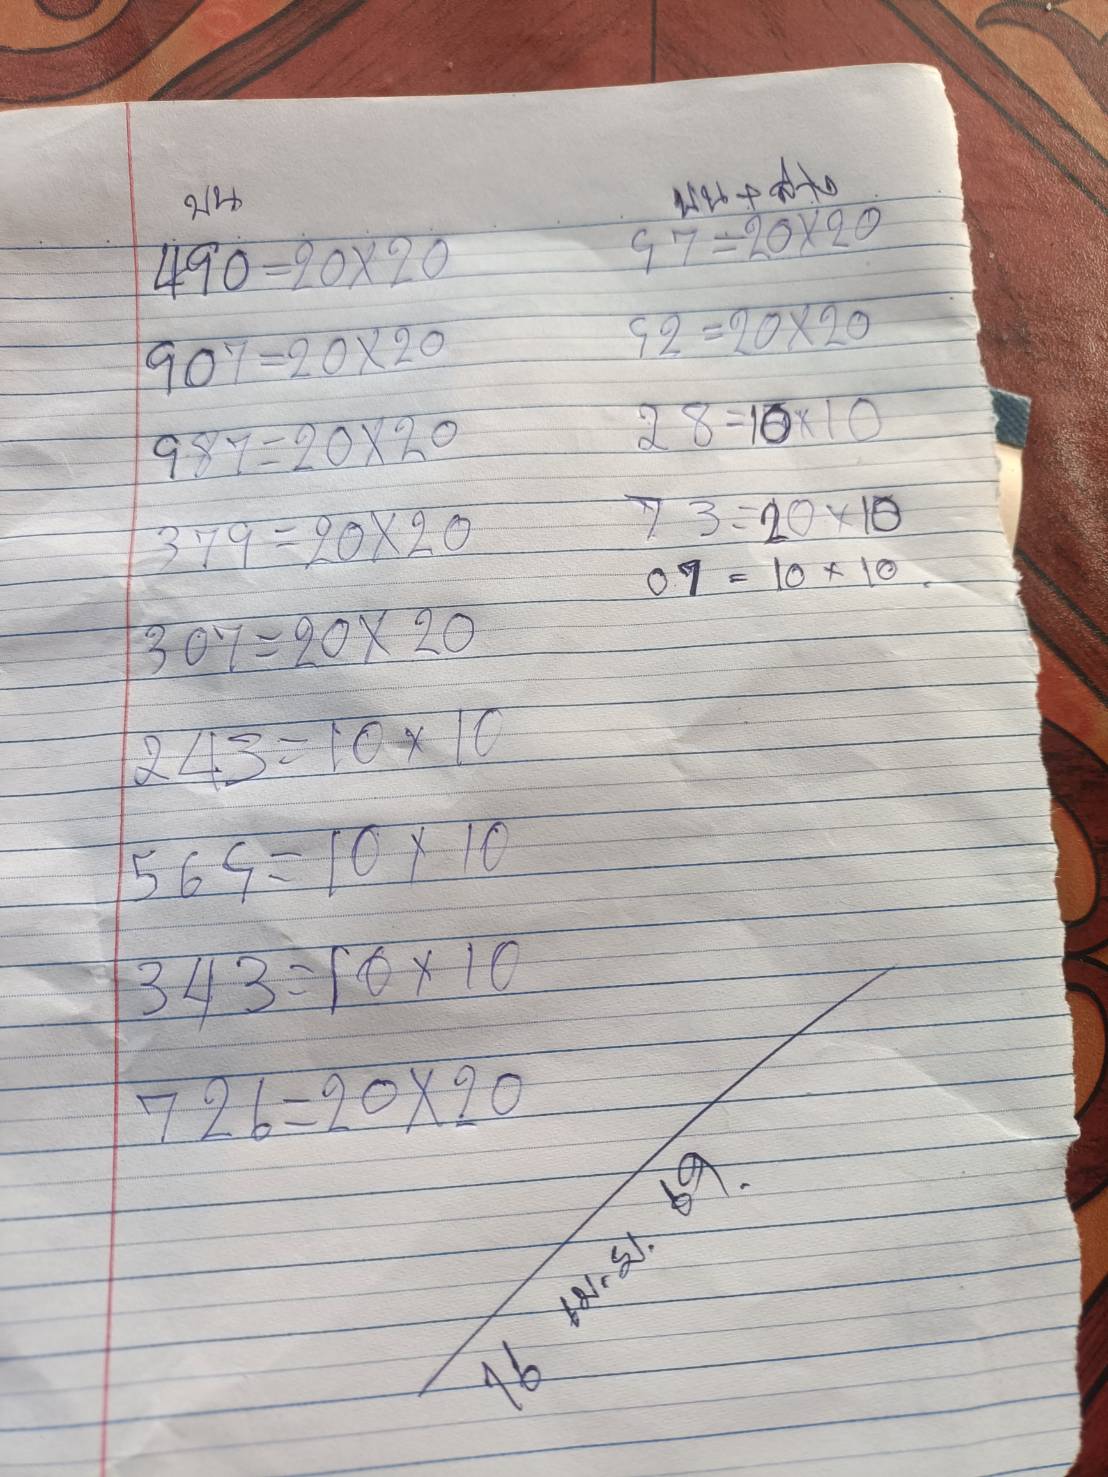 บน
490=20X20
907=20X20
987=20X20
379=20X20
307=20X20
243=10x10
569=10x10
343=10x10
726=20X20
บน+ล่าง
97=20X20
92=20X20
28=10x10
73=20x10
07=10x10.
16 เม.ย. 69.